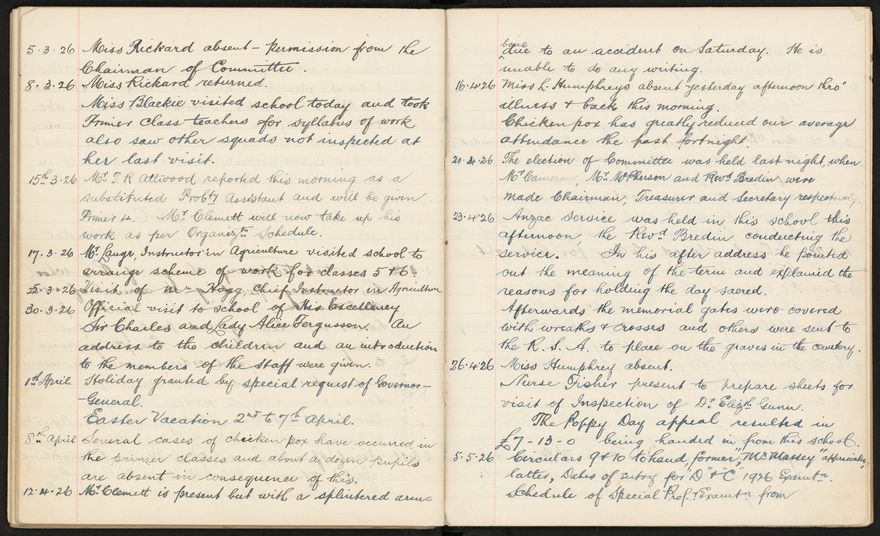 5.3.26 Miss Rickard absent – permission from the
Chairman of Committee.
8.3.26 Miss Rickard returned.
Miss Blackie visited school today and took
Primer Class teachers for syllabus of work
also saw other squads not inspected at
her last visit.
15th.3.26 Mr. T. R. Attwood reported this morning as a
substituted Probty Assistant and will be given
Primer 4. Mr. Clemett will now take up his
work as per Organizatn Schedule.
17.3.26 Mr. Lange, Instructor in Agriculture visited school to
arrange scheme of work for classes 5 + 6.
3.26 Visit of Mr Hogg, Chief Instructor in Agriculture
30.3.26 Official visit to school of His Excellency
Sir Charles and Lady Alice Fergusson. An
address to the children and an introduction
to the members of the Staff were given.
1st April Holiday granted by special request of Governor-
General.
Easter Vacation 2nd to 7th April.
8th April Several cases of chicken pox have occurred in
the primer classes and about a dozen pupils
are absent in consequence of this.
12.4.26 Mr. Clemett is present but with a splintered arm
bone
due to an accident on Saturday. He is
unable to do any writing.
16.4.26 Miss L. Humphreys absent yesterday afternoon thro'
illness + back this morning.
Chicken pox has greatly reduced our average
attendance the past fortnight.
20.4.26 The election of Committee was held last night, when
Mr Cameron, Mr. McPherson and Revd. Bredin were
made Chairman, Treasurer and Secretary respectively.
23.4.26 Anzac Service was held in this school this
afternoon, the Revd Bredin conducting the
service. In his after address he pointed
out the meaning of the term and explained the
reasons for holding the day sacred.
Afterwards the memorial gates were covered
with wreaths + crosses and others were sent to
the R. S. A. to place on the graves in the cemetery.
26.4.26 Miss Humphrey absent.
Nurse Fisher present to prepare sheets for
visit of Inspection of Dr. Elizth Gunn.
The Poppy Day appeal resulted in
£7-13-0 being handed in from this school.
5.5.26 Circulars 9 + 10 to hand, former, "Mr Massey" appreciation
latter, Dates of entry for "D" + "C" 1926 Examtn.
Schedule of Special Prof. Examtn from